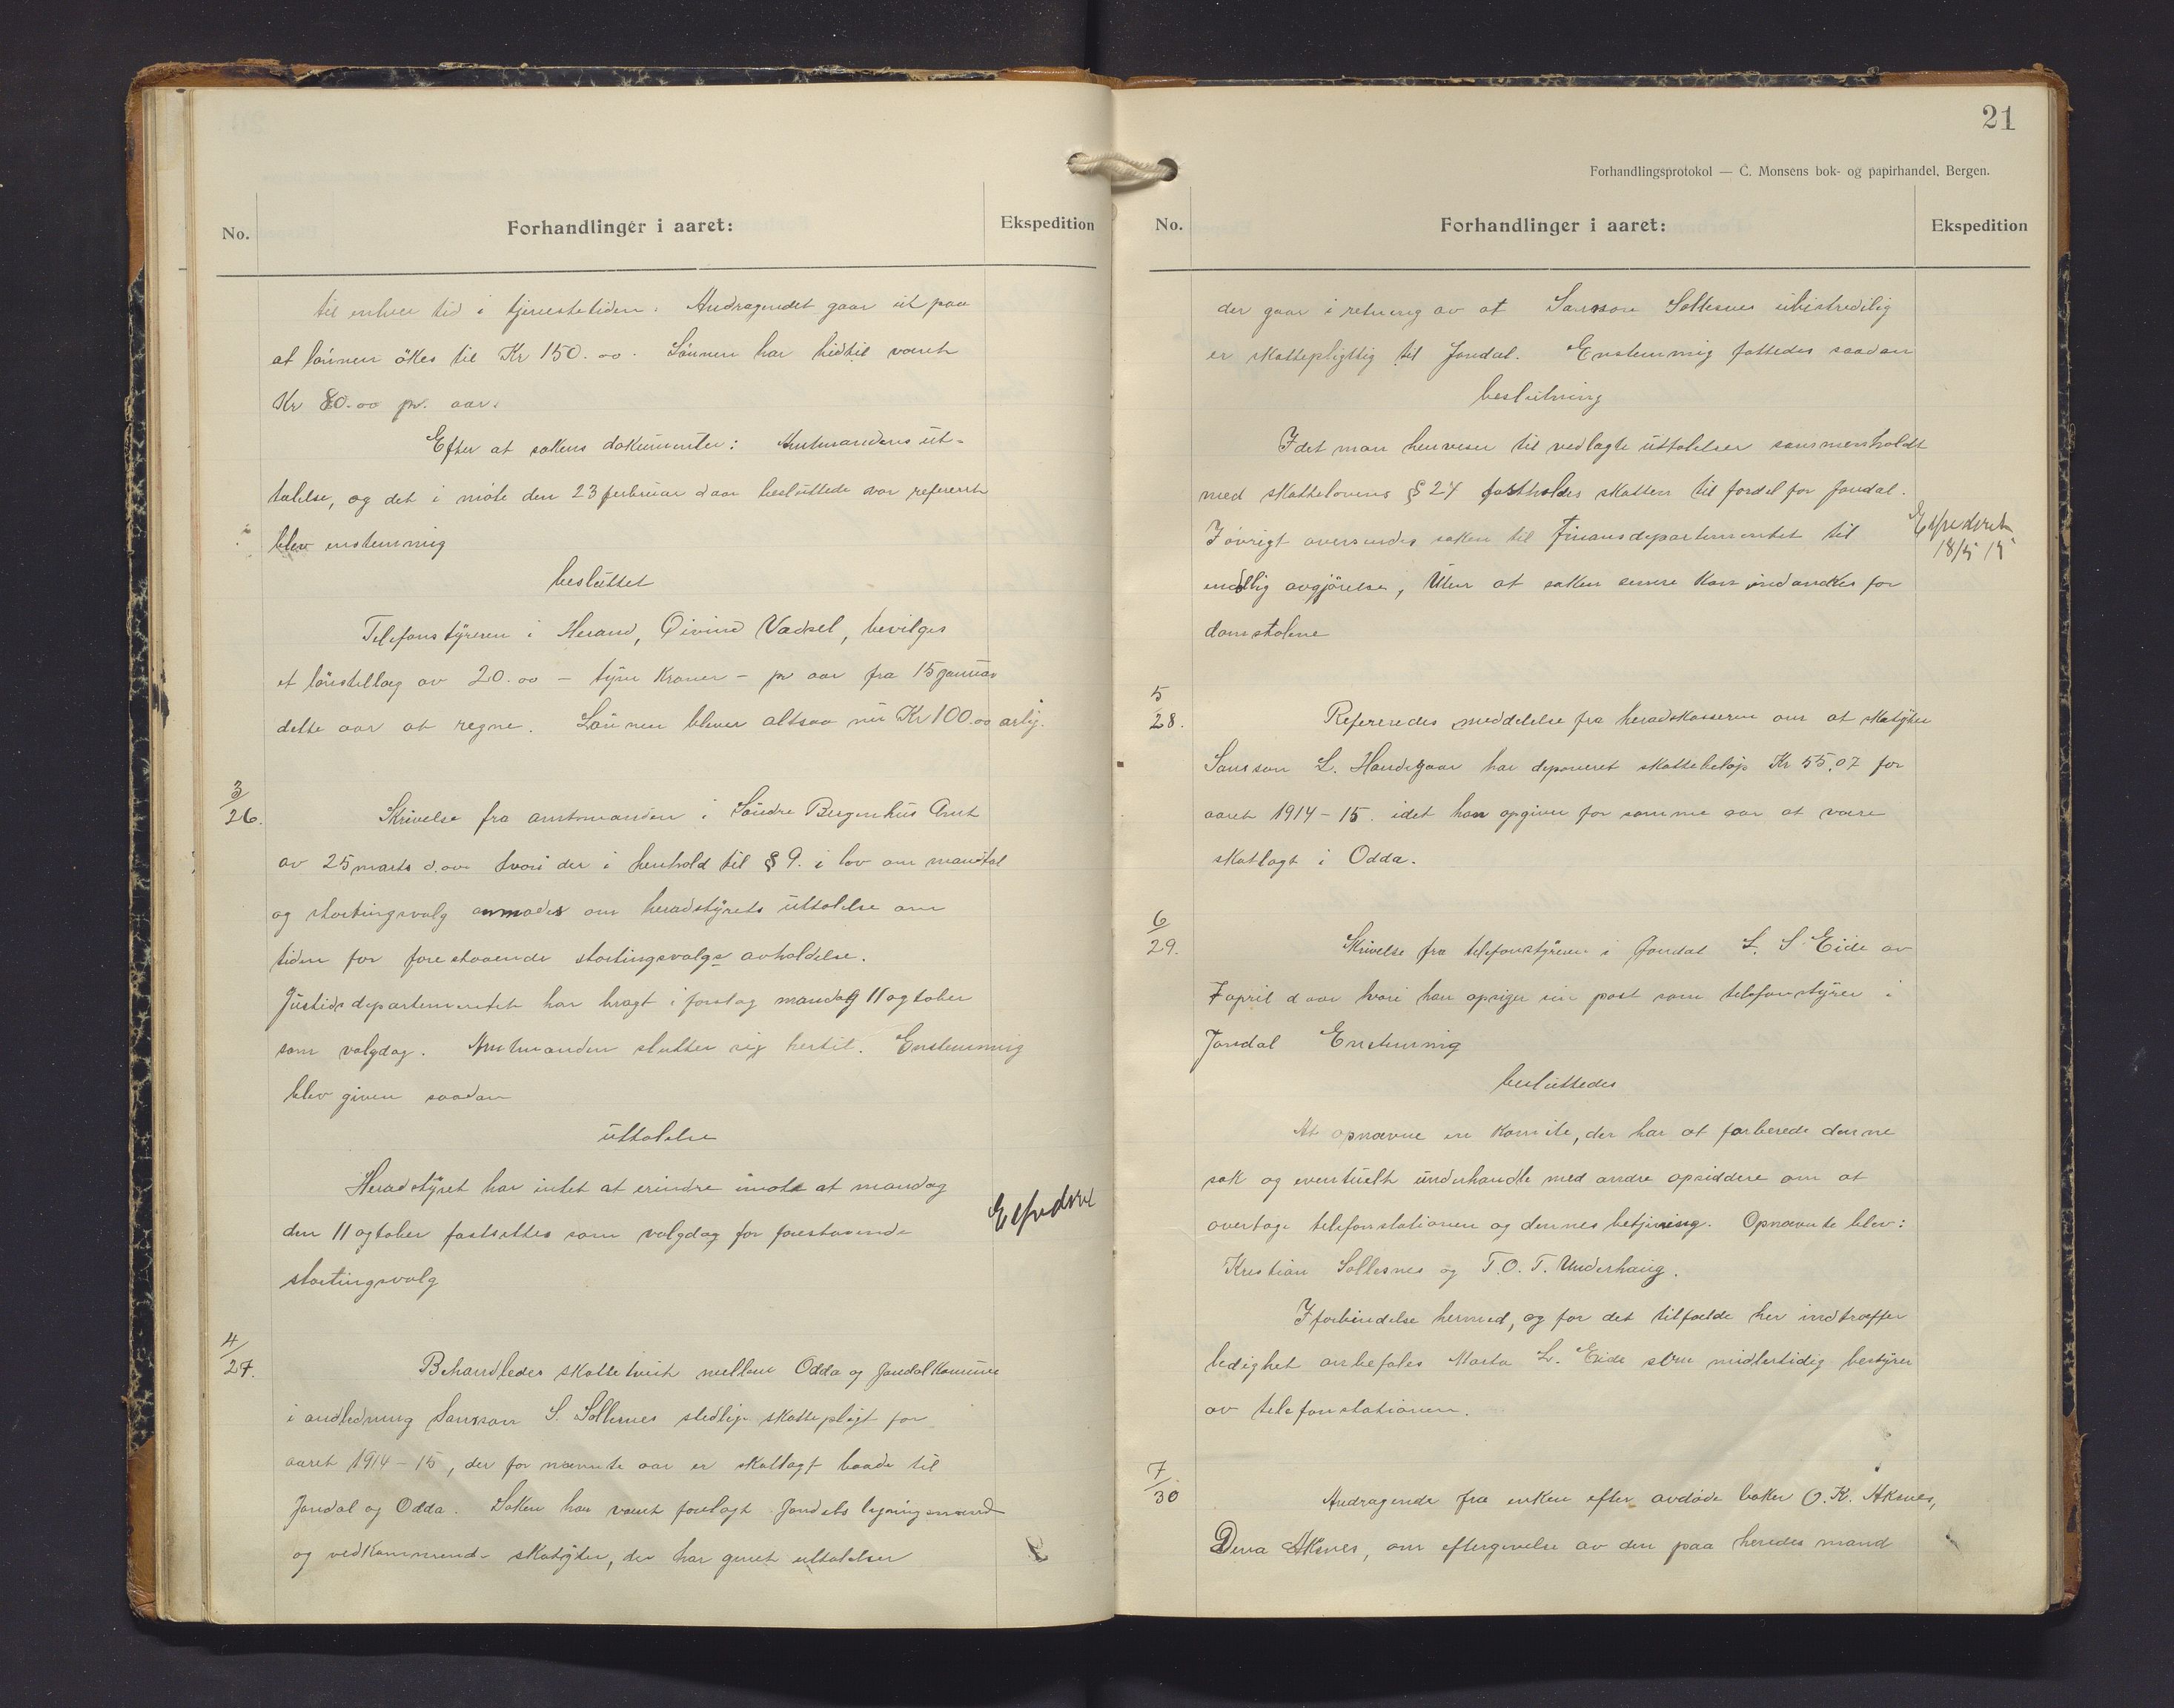 No. Forhandlinger i aaret: Ekspedition
til enhver tid i tjenestetiden. Andragendet gaar ut paa
at lønnen økes til Kr 150.00. Lønnen har hidtil været
Kr 80.00 pr. aar.
Efter at sakens dokumenter: Amtmandens ut-
talelse, og det i møte den 23 februar d aar besluttede var referert
blev enstemmig
besluttet
Telefonstyreren i Herand, Øivind Vadsel, bevilges
et lønstillæg av 20.00 – tyve kroner – pr aar fra 15 januar
dette aar at regne. Lønnen bliver altsaa nu Kr 100.00 arlig.
3/26. Skrivelse fra amtmanden i Søndre Bergenhus Amt
av 25 marts d.aa hvori der i henhold til § 9. i lov om mandtal
og stortingsvalg anmodes om heradstyrets uttalelse om
tiden for forestaaende stortingsvalgs avholdelse.
Justisdepartementet har bragt i forslag mandag 11 ogtober
som valgdag. Amtmanden slutter sig hertil. Enstemmig
blev given saadan
uttalelse
Heradstyret har intet at erindre imote at mandag
den 11 ogtober fastsettes som valgdag for forestaaende
stortingsvalg
Expedert
4/27. Behandledes skattetvist mellem Odda og Jondal Komune
i andledning Samson S. Sollesnes stedlige skattepligt for
aaret 1914 – 15, der for nævnte aar er skatlagt baade til
Jondal og Odda. Saken har været forelagt Jondals ligningsmænd
og vedkommende skatyter, der har gevet uttalelser
21
Forhandlingsprotokol — C. Monsens bok- og papirhandel, Bergen.
No. Forhandlinger i aaret: Ekspedition
der gaar i retning av at Samson Sollesnes ubistredilig
er skattepligtig til Jondal. Enstemmig fattedes saadan
beslutning
Idet man henviser til vedlagte uttalelser sammenholdt
med skattelovens § 27 fastholdes skatten til fordel for Jondal.
Iøvrigt oversendes saken til Finansdepartementet til
endelig avgjørelse, Uten at saken senere kan indankes for
domstolene
Expedert
18/5 15
5/28. Refereredes meddelelse fra heradskasseren om at skatyter
Samson L. Handegaar har deponeret skattebeløp Kr 55,07 for
aaret 1914 – 15. idet han opgiver for samme aar at være
skatlagt i Odda.
6/29. Skrivelse fra telefonstyreren i Jondal L. S. Eide av
7 april d aar hvori han opsiger sin post som telefonstyrer i
Jondal Enstemmig
besluttedes
At opnævne en komite, der har at forberede denne
sak og eventuelt underhandle med andre opsiddere om at
overtage telefonstationen og dennes betjening. Opnævnte blev:
Kristian Sollesnes og T. O. T. Underhaug.
I forbindelse hermed, og for det tilfælde her indtræffer
ledighet anbefales Marta L. Eide som midlertidig bestyrer
av telefonstationen.
7/30 Andragende fra enken efter avdøde baker O. K. Aksnes,
Dina Aksnes, om eftergivelse av den paa heredes mand